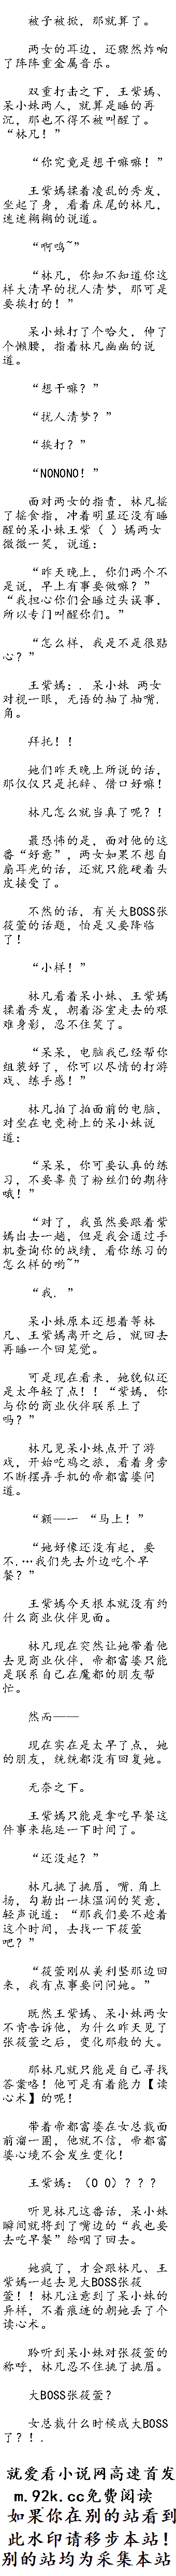 被子被掀，那就算了。
两女的耳边，还骤然炸响
了阵阵重金属音乐。
双重打击之下，王紫嫣、
呆小妹两人，就算是睡的再
沉，那也不得不被叫醒了。
“林凡！”
“你究竟是想干嘛嘛！”
王紫嫣揉着凌乱的秀发，
坐起了身，看着床尾的林凡，
迷迷糊糊的说道。
“啊呜~”
“林凡，你知不知道你这
样大清早的扰人清梦，那可是
要挨打的！”
呆小妹打了个哈欠，伸了
个懒腰，指着林凡幽幽的说
道。
“想干嘛？”
“扰人清梦？”
“挨打？”
“NONONO！”
面对两女的指责，林凡摇
了摇食指，冲着明显还没有睡
醒的呆小妹王紫（ ）嫣两女
微微一笑，说道：
“昨天晚上，你们两个不
是说，早上有事要做嘛？”
“我担心你们会睡过头误事，
所以专门叫醒你们。”
“怎么样，我是不是很贴
心？”
王紫嫣：．呆小妹 两女
对视一眼，无语的抽了抽嘴.
角。
拜托！！
她们昨天晚上所说的话，
那仅仅只是托辞、借口好嘛！
林凡怎么就当真了呢？！
最恐怖的是，面对他的这
番“好意”，两女如果不想自
扇耳光的话，还就只能硬着头
皮接受了。
不然的话，有关大BOSS张
筱萱的话题，怕是又要降临
了！
“小样！”
林凡看着呆小妹、王紫嫣
揉着秀发，朝着浴室走去的艰
难身影，忍不住笑了。
“呆呆，电脑我已经帮你
组装好了，你可以尽情的打游
戏、练手感！”
林凡拍了拍面前的电脑，
对坐在电竞椅上的呆小妹说
道：
“呆呆，你可要认真的练
习，不要辜负了粉丝们的期待
哦！”
“对了，我虽然要跟着紫
嫣出去一趟，但是我会通过手
机查询你的战绩，看你练习的
怎么样的哟~”
“我．”
呆小妹原本还想着等林
凡、王紫嫣离开之后，就回去
再睡一个回笼觉。
可是现在看来，她貌似还
是太年轻了点！！“紫嫣，你
与你的商业伙伴联系上了
吗？”
林凡见呆小妹点开了游
戏，开始吃鸡之旅，看着身旁
不断摆弄手机的帝都富婆问
道。
“额—一 “马上！”
“她好像还没有起，要
不.…我们先去外边吃个早
餐？”
王紫嫣今天根本就没有约
什么商业伙伴见面。
林凡现在突然让她带着他
去见商业伙伴，帝都富婆只能
是联系自己在魔都的朋友帮
忙。
然而——
现在实在是太早了点，她
的朋友，统统都没有回复她。
无奈之下。
王紫嫣只能是拿吃早餐这
件事来拖延一下时间了。
“还没起？”
林凡挑了挑眉，嘴.角上
扬，勾勒出一抹温润的笑意，
轻声说道：“那我们要不趁着
这个时间，去找一下筱萱
吧？”
“筱萱刚从美利坚那边回
来，我有点事要问问她。”
既然王紫嫣、呆小妹两女
不肯告诉他，为什么昨天见了
张筱萱之后，变化那般的大。
那林凡就只能是自己寻找
答案咯！他可是有着能力【读
心术】的呢！
带着帝都富婆在女总裁面
前溜一圈，他就不信，帝都富
婆心境不会发生变化！
王紫嫣：（0 0）？？？
听见林凡这番话，呆小妹
瞬间就将到了嘴边的“我也要
去吃早餐”给咽了回去。
她疯了，才会跟林凡、王
紫嫣一起去见大BOSS张筱
萱！！林凡注意到了呆小妹的
异样，不着痕迹的朝她丢了个
读心术。
聆听到呆小妹对张筱萱的
称呼，林凡忍不住挑了挑眉。
大BOSS张筱萱？
女总裁什么时候成大BOSS
了？！．
就爱看小说网高速首发
m.92k.cc免费阅读
如果你在别的站看到
此水印请移步本站！
别的站均为采集本站